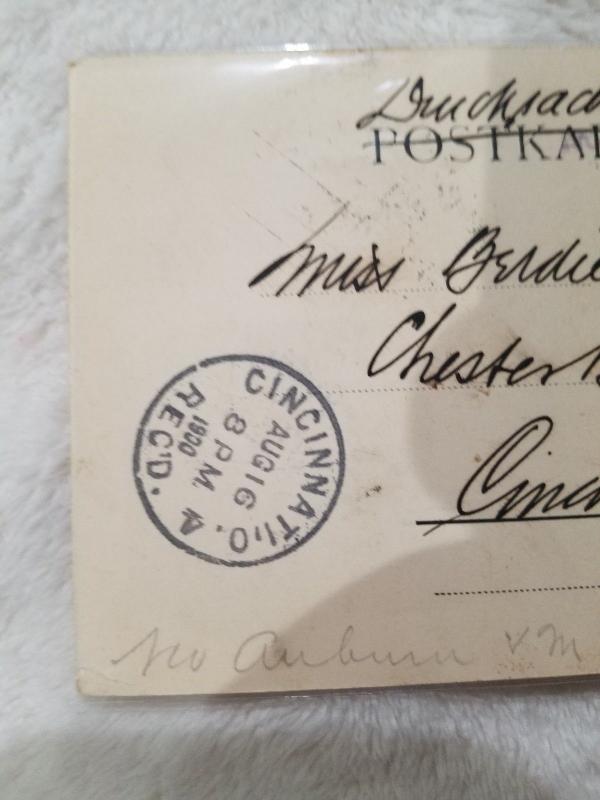 Drucksac
POSTKA
Miss Berdie
Chester
Cinc
CINCINNATI, O.
AUG 16
8 PM
1900
REC'D.
4
Auburn & M